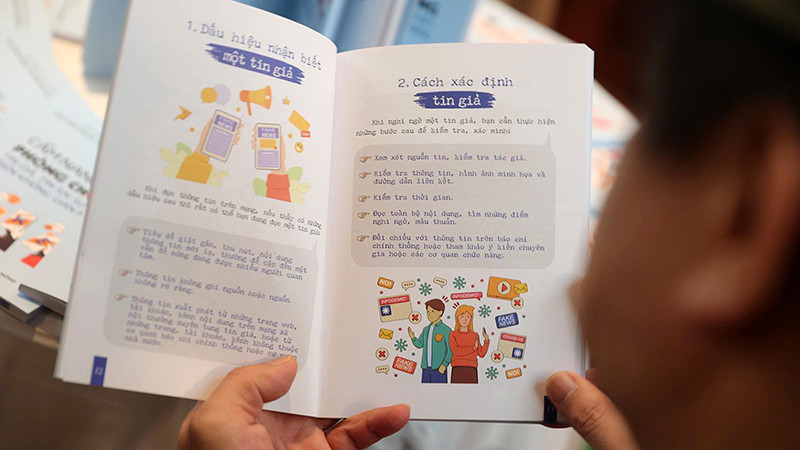 1. Dấu hiệu nhận biết
một tin giả
FAKE NEWS
Khi đọc thông tin trên mạng, nếu thấy có những
dấu hiệu sau thì rất có thể bạn đang đọc một tin giả:
Tiêu đề giật gân, thu hút, nội dung
thông tin mới lạ, thường đề cập đến một
vấn đề nóng đang được nhiều người quan
tâm.
Thông tin không ghi nguồn hoặc nguồn
không rõ ràng.
Thông tin xuất phát từ những trang web,
tài khoản, kênh nội dung trên mạng xã
hội thường xuyên tung tin giả, hoặc từ
những trang, tài khoản, kênh không thuộc
cơ quan báo chí chính thống hoặc cơ quan
nhà nước.
12
2. Cách xác định
tin giả
Khi nghi ngờ một tin giả, bạn cần thực hiện
những bước sau để kiểm tra, xác minh:
Xem xét nguồn tin, kiểm tra tác giả.
Kiểm tra thông tin, hình ảnh minh họa và
đường dẫn liên kết.
Kiểm tra thời gian.
Đọc toàn bộ nội dung, tìm những điểm
nghi ngờ, mâu thuẫn.
Đối chiếu với thông tin trên báo chí
chính thống hoặc tham khảo ý kiến chuyên
gia hoặc các cơ quan chức năng.
NO!
INFODEMIC
INFODEMIC
FAKE NEWS
COVID-19
FAKE NEWS
NO!
CẨM NANG